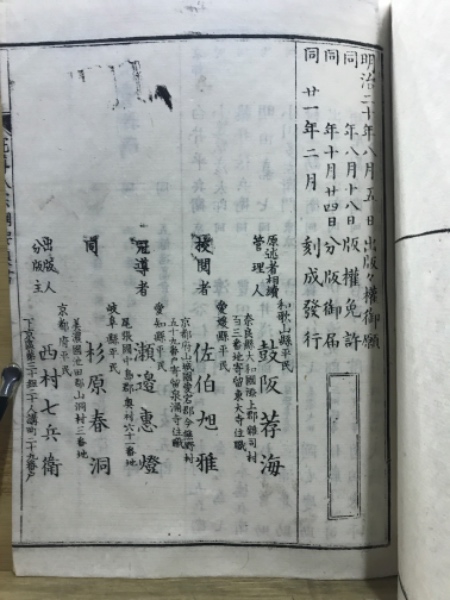 明治二十年八月五日出版々權御願
同年八月十八日版權免許
同年十月廿四日分版御届
同廿一年二月刻成發行
原述者相續
管理人
和歌山縣平民
鼓阪荐海
奈良縣大和國添上郡雜司村
百三番地寄留東大寺住職
校閲者
愛媛縣平民
佐伯旭雅
京都府山城國愛宕郡今熊野村
五十九番戸寄留泉涌寺住職
冠導者
愛知縣平民
瀬邉惠燈
尾張國中島郡奥村六十一番地
同
岐阜縣平民
杉原春洞
美濃國池田郡山洞村三番地
出版人
分版主
京都府平民
西村七兵衛
下京區第三十組二十人講町二十九番戸